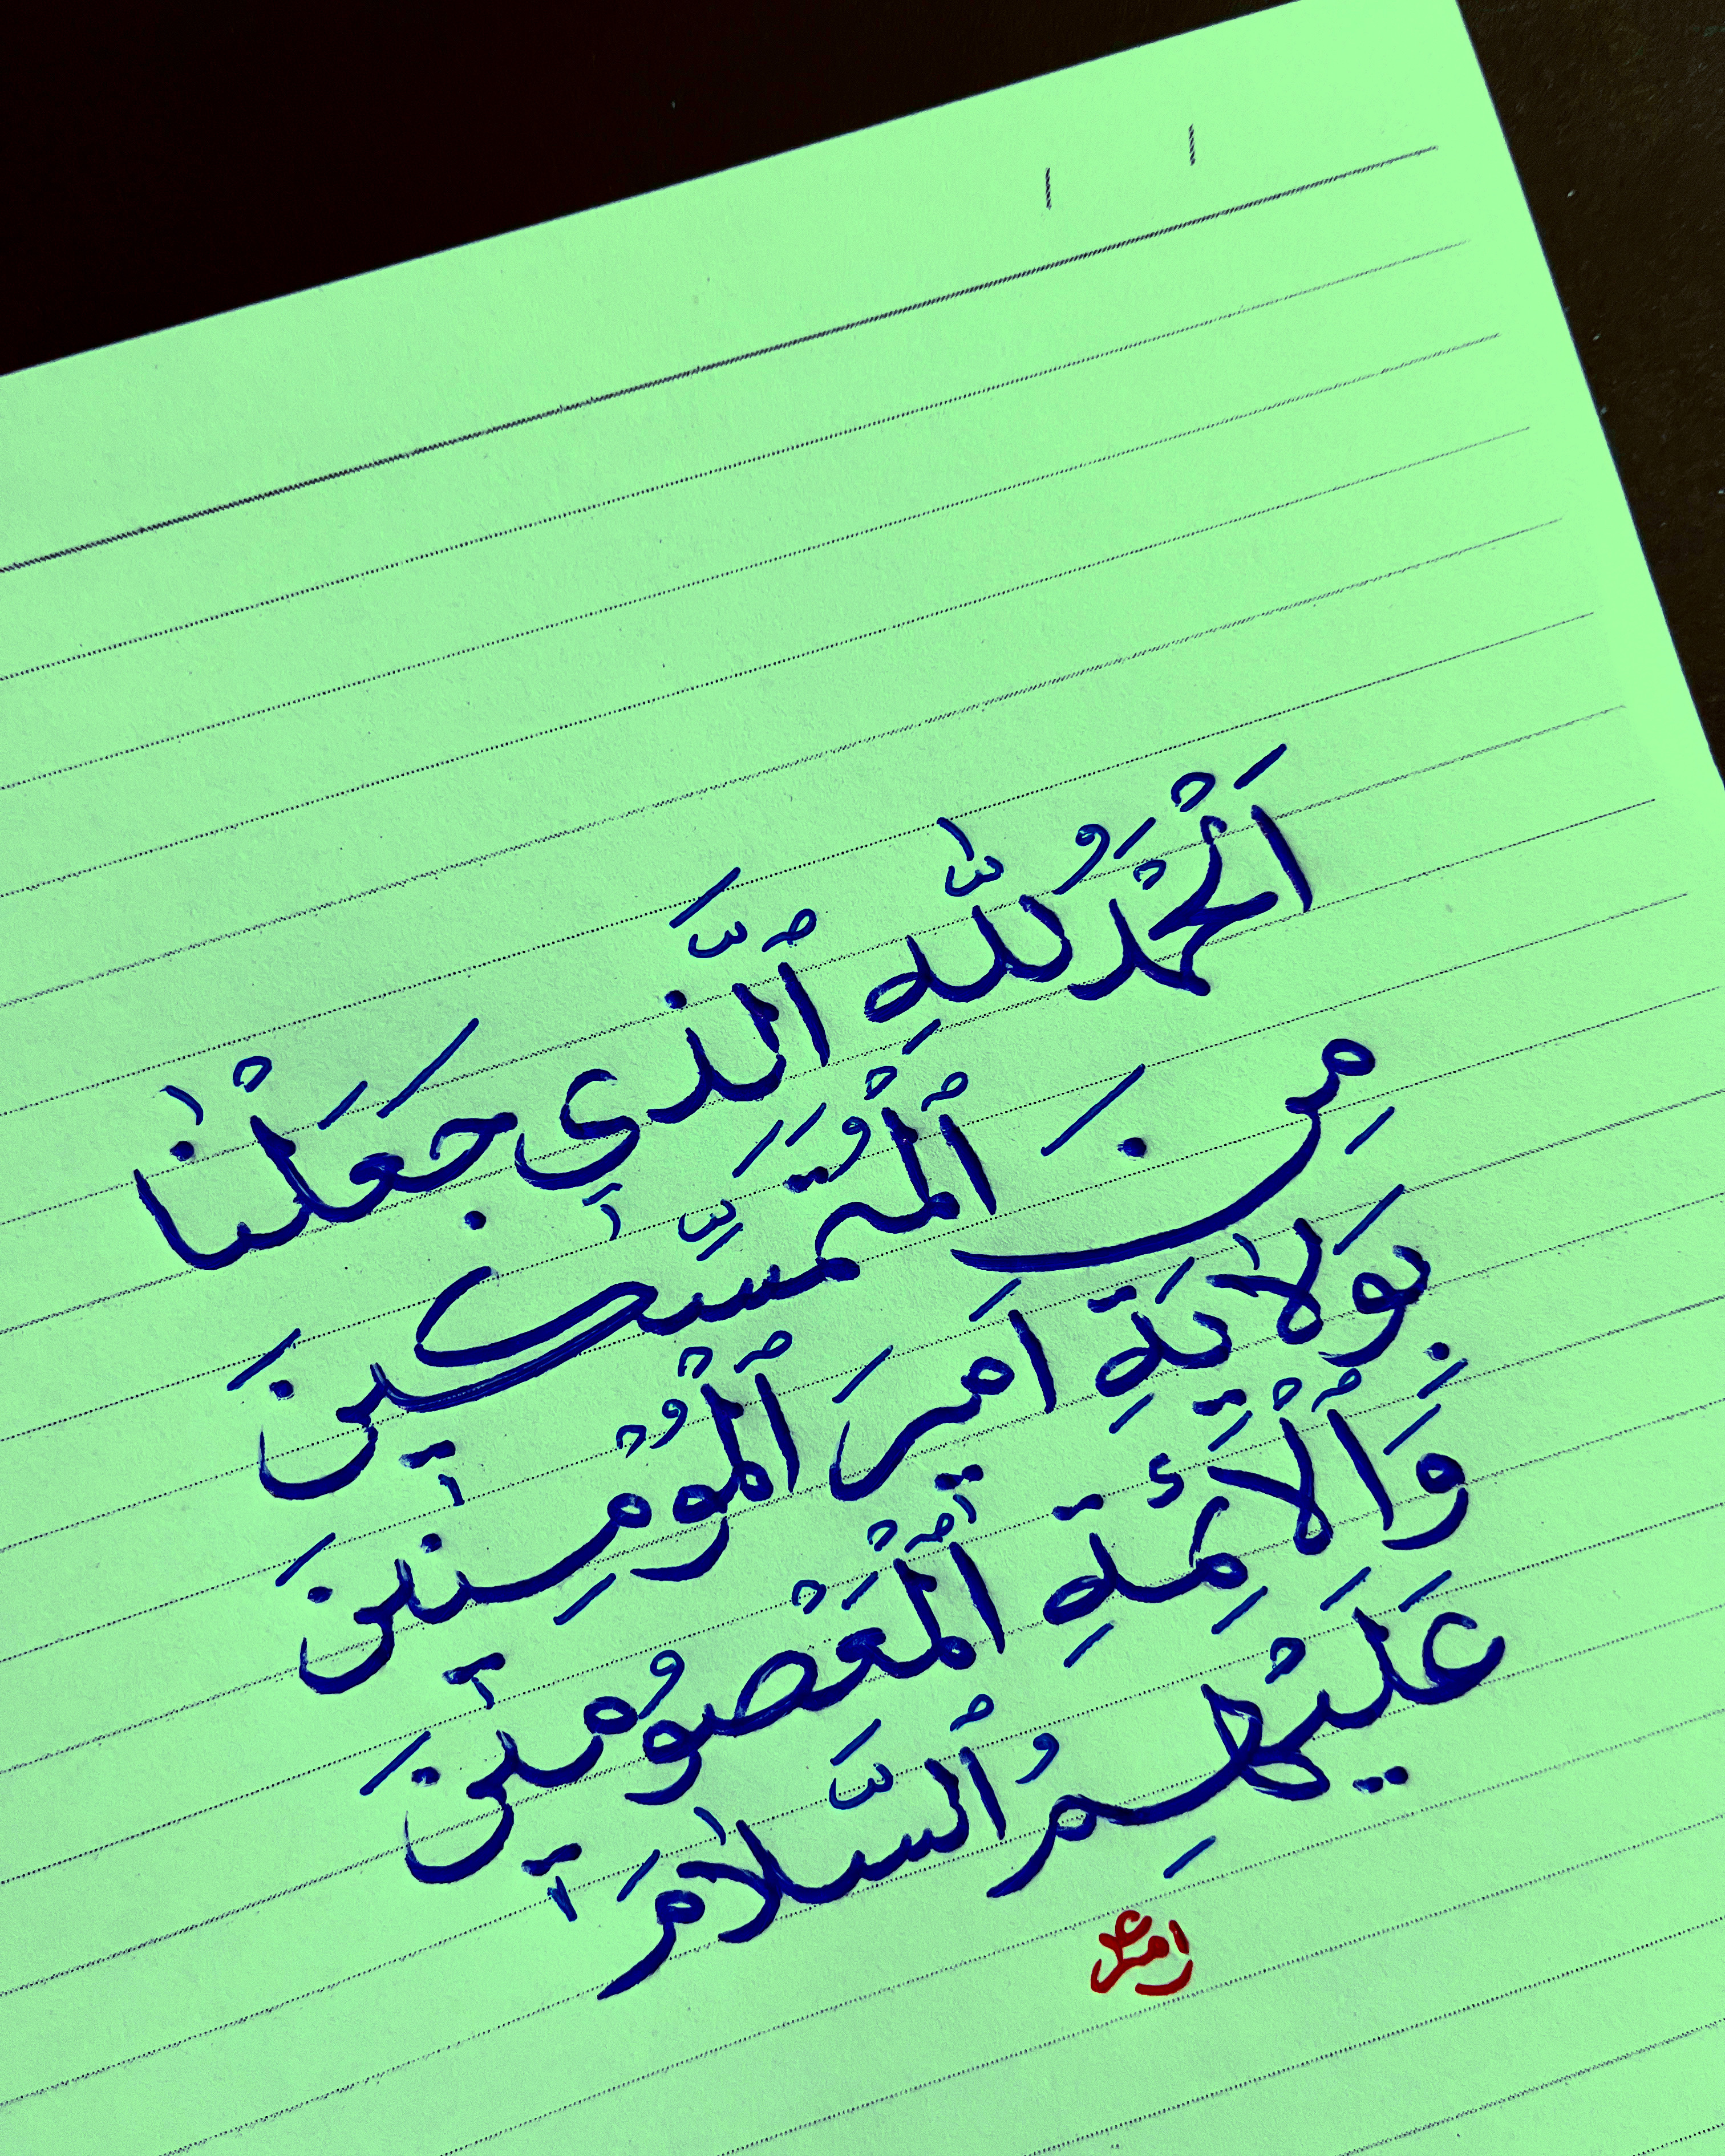 اَلْحَمْدُ لِلّٰهِ ٱلَّذٖي جَعَلَنْا
مِنَ ٱلْمُتَمَسِّكٖينَ
بِوَلٰايَةِ اَمٖيرَ ٱلْمُؤْمِنٖينَ
وَٱلْاَئِمَةِ ٱلْمَعْصُومٖينَ
عَلَيْهِمُ ٱلسَّلٰامَ